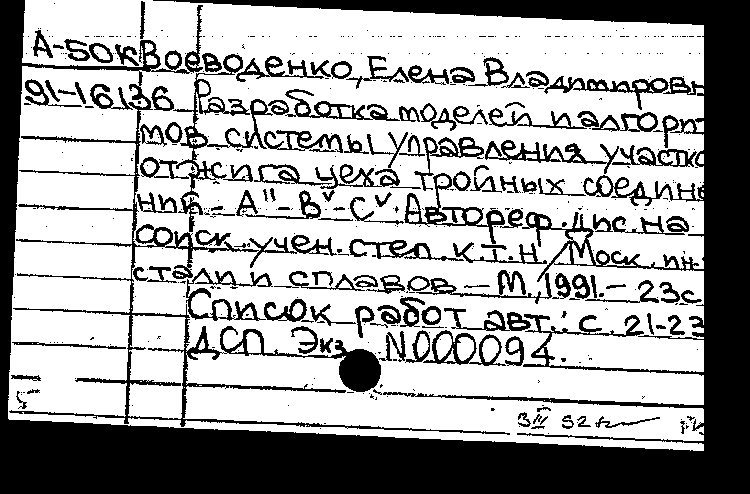 А-50к Воеводенко, Елена Владимировн
91-16136 Разработка моделей и алгорит
мов системы управления участко
отжига цеха тройных соедине
ний - A" - B^v - C^v. Автореф. дис. на
соиск. учен. степ. к.т.н. / Моск. ин-
стали и сплавов. - М., 1991. - 23с
Список работ авт.: с. 21-23
ДСП. Экз. N000094.